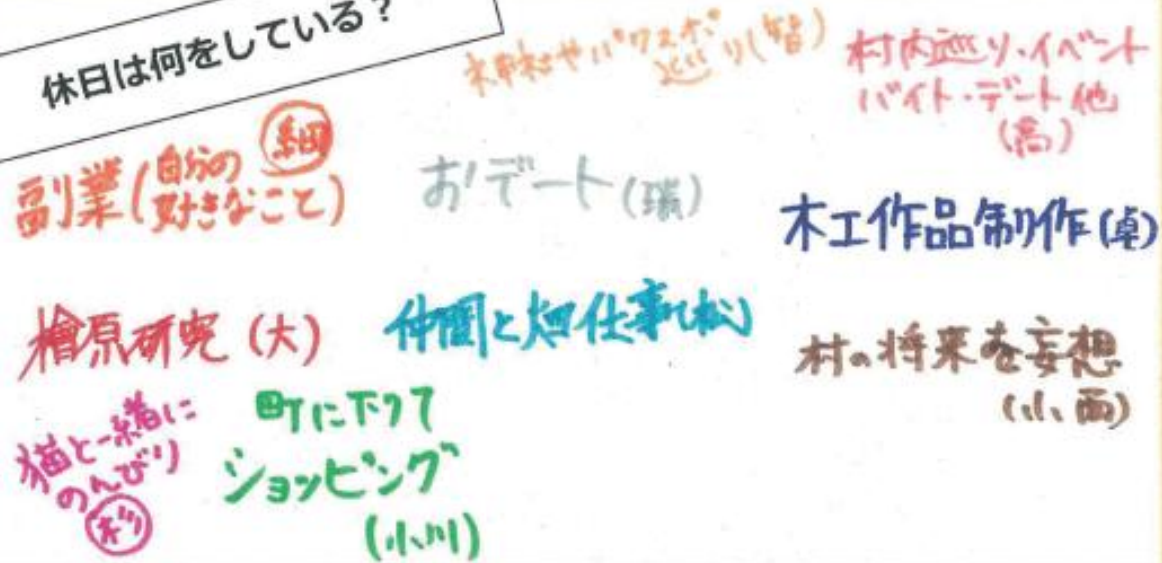 休日は何をしている?
神社やパワスポ
巡り(智)
村内巡り・イベント
バイト・デート 他
(高)
副業(自分の
好きなこと)
細
お!デート(瑛)
木工作品制作(卓)
檜原研究(大)
仲間と畑仕事(松)
村の将来を妄想
(小雨)
猫と一緒に
のんびり
杉
町に下りて
ショッピング
(小川)